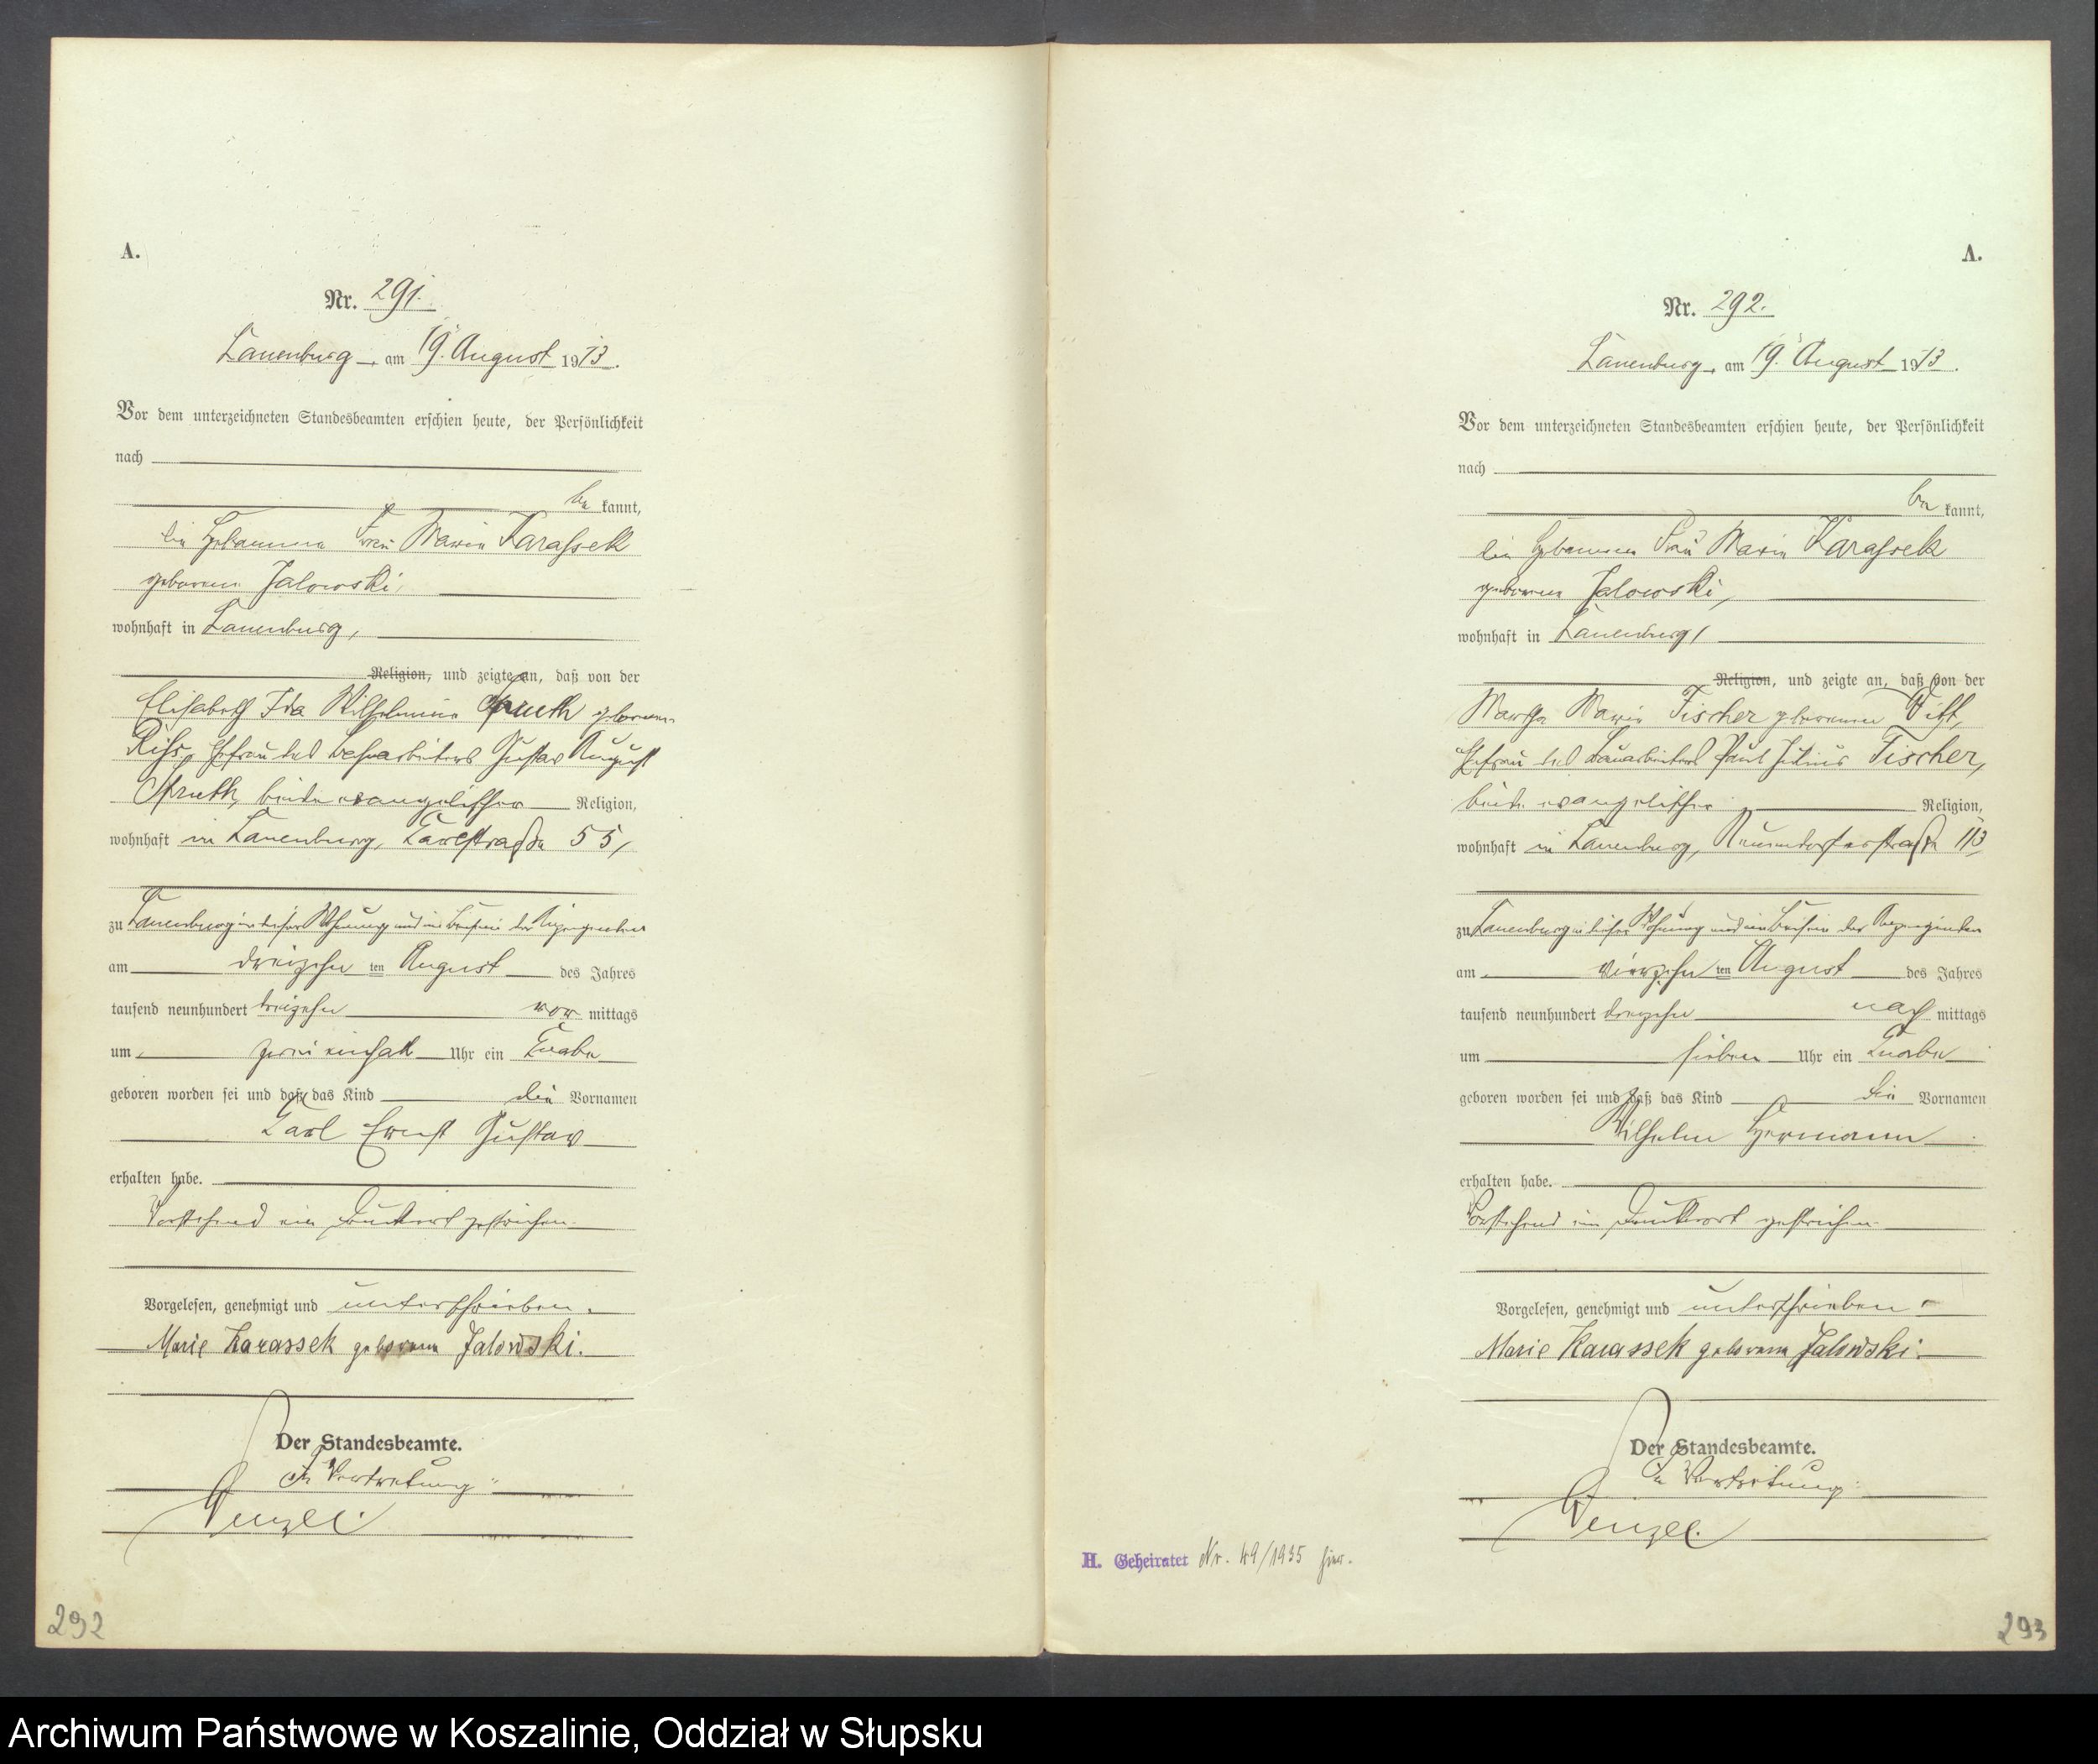 A.
Nr. 291.
Lauenburg, am 19. August 1913.
Vor dem unterzeichneten Standesbeamten erschien heute, der Persönlichkeit
nach
be kannt,
die Hebamme Frau Marie Karassek
geborene Jalowski,
wohnhaft in Lauenburg,
Religion, und zeigte an, daß von der
Elisabeth Ida Wilhelmine geborene
Ehefrau des Gustav August
beide evangelischer Religion,
wohnhaft in Lauenburg, 55,
zu Lauenburg in dieser Wohnung und im Beisein der Anzeigenden
am dreizehn ten August des Jahres
tausend neunhundert dreizehn vor mittags
um zwei einhalb Uhr ein Knabe
geboren worden sei und daß das Kind die Vornamen
Carl Ernst Gustav
erhalten habe.
Vorstehend ein Druckwort gestrichen.
Vorgelesen, genehmigt und unterschrieben.
Marie Karassek geborene Jalowski.
Der Standesbeamte.
In Vertretung:
Wenzel.
292
A.
Nr. 292.
Lauenburg, am 19. August 1913.
Vor dem unterzeichneten Standesbeamten erschien heute, der Persönlichkeit
nach
be kannt,
die Hebamme Frau Marie Karassek
geborene Jalowski,
wohnhaft in Lauenburg,
Religion, und zeigte an, daß von der
Martha Marie Fischer geborene
Ehefrau des Bauarbeiters Paul Julius Fischer,
beide evangelischer Religion,
wohnhaft in Lauenburg, Neuendorferstraße 113,
zu Lauenburg in dieser Wohnung und im Beisein der Anzeigenden
am vierzehn ten August des Jahres
tausend neunhundert dreizehn nach mittags
um sieben Uhr ein Knabe
geboren worden sei und daß das Kind die Vornamen
Wilhelm Hermann
erhalten habe.
Vorstehend ein Druckwort gestrichen.
Vorgelesen, genehmigt und unterschrieben.
Marie Karassek geborene Jalowski.
Der Standesbeamte.
In Vertretung:
Wenzel.
H. Geheiratet Nr. 49/1935 hier.
293
Archiwum Państwowe w Koszalinie, Oddział w Słupsku